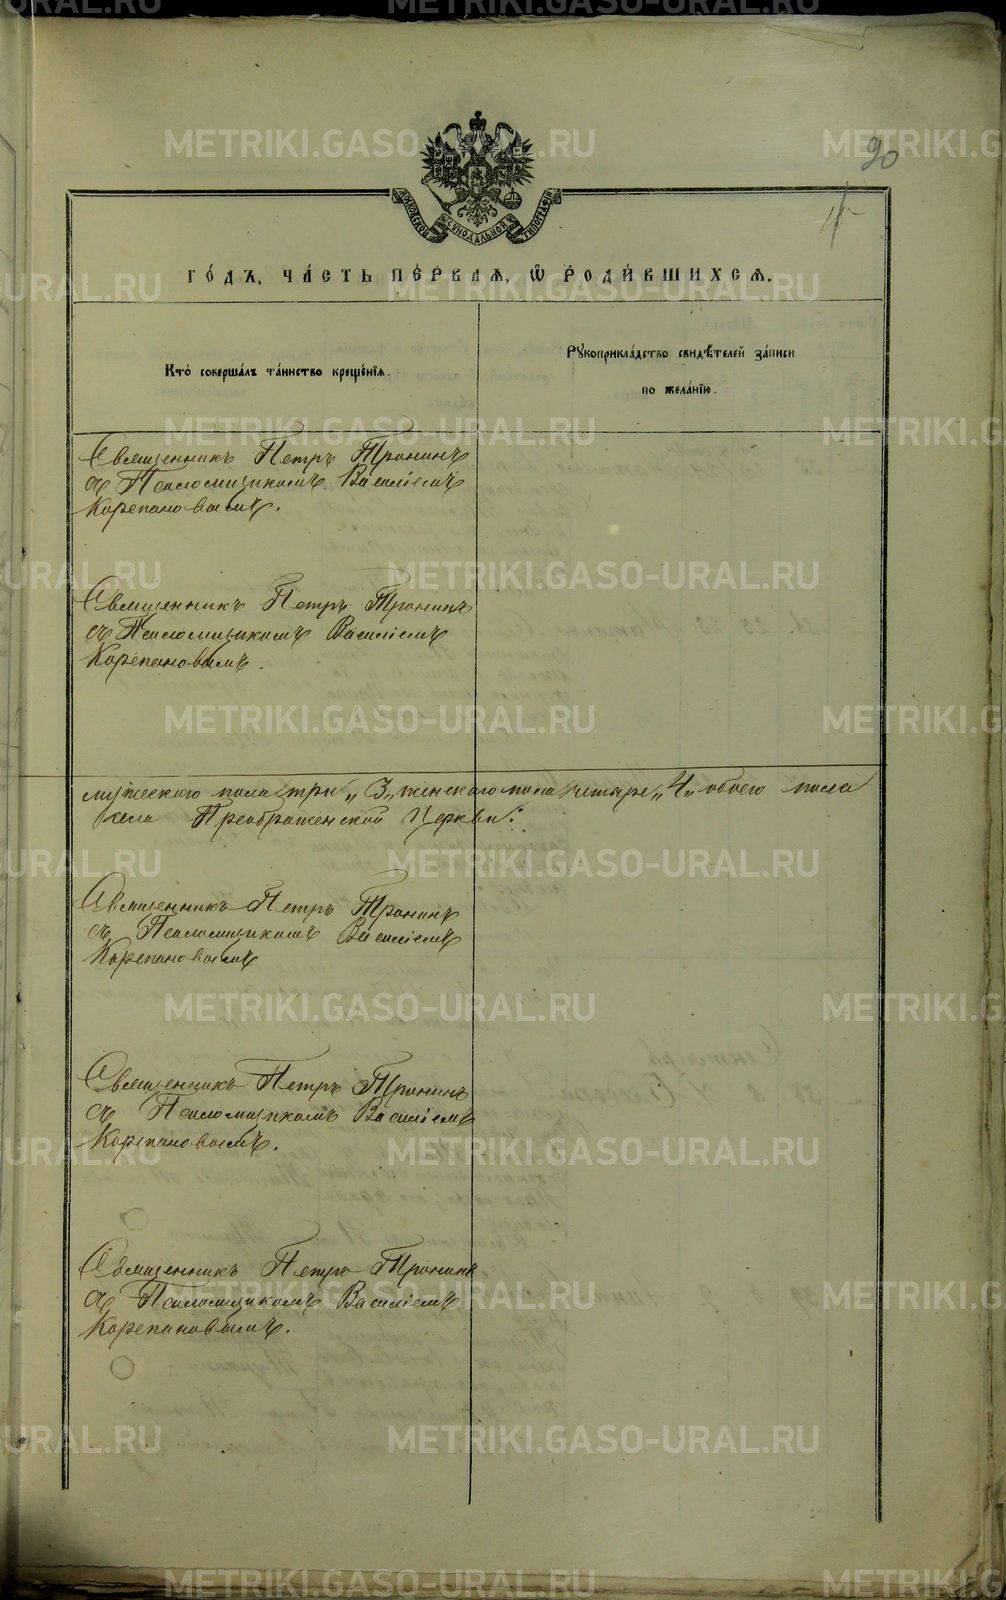 90
МОСКОВСКОЙ СѴНОДАЛЬНОЙ ТИПОГРАФІИ
ГО́ДЪ, ЧА́СТЬ ПЕ́РВАѦ, Ѽ РОДИ́ВШИХСѦ.
Кто̀ соверша́лъ та́инство креще́нїѧ.
Рꙋкоприкла́дство свидѣ́телей за́писи
по жела́нїю.
Священникъ Петръ Тронинъ
съ Псаломщикомъ Василіемъ
Корепановымъ.
Священникъ Петръ Тронинъ
съ Псаломщикомъ Василіемъ
Корепановымъ.
мужескаго пола три „3„ женскаго пола четыре „4„ обоего пола
села Преображенской Церкви:
Священникъ Петръ Тронинъ
съ Псаломщикомъ Василіемъ
Корепановымъ
Священникъ Петръ Тронинъ
съ Псаломщикомъ Василіемъ
Корепановымъ.
Священникъ Петръ Тронинъ
съ Псаломщикомъ Василіемъ
Корепановымъ.
METRIKI.GASO-URAL.RU